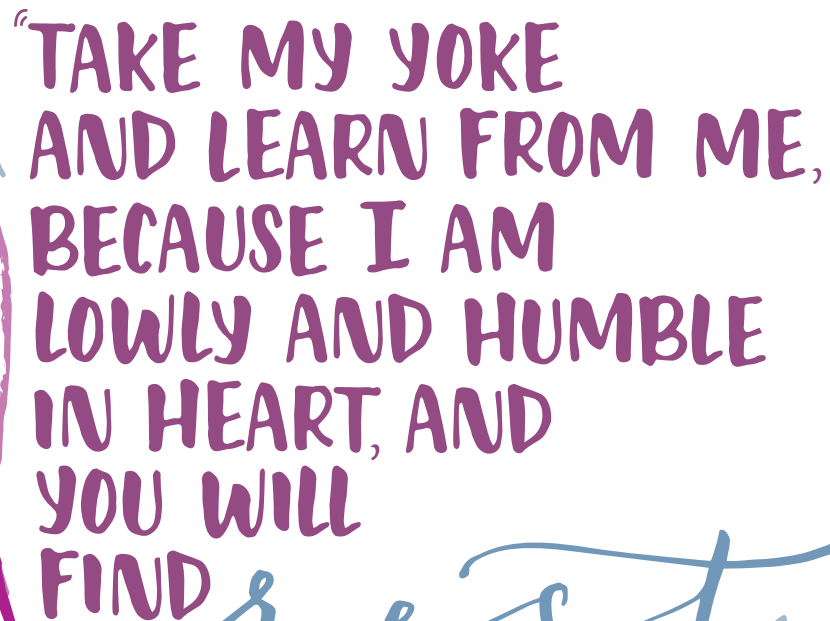 “TAKE MY YOKE
AND LEARN FROM ME,
BECAUSE I AM
LOWLY AND HUMBLE
IN HEART, AND
YOU WILL
FIND rest